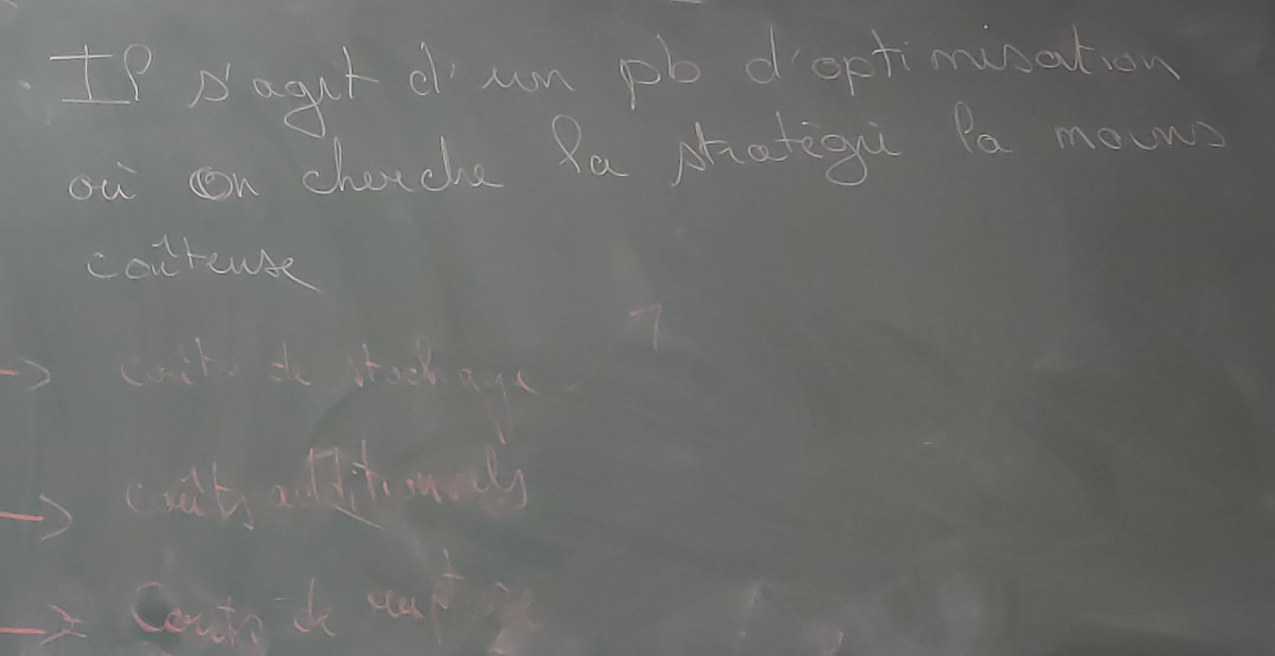 Il s'agit d'un pb d'optimisation
où on cherche la stratégie la moins
coûteuse
→ coûts de stockage
→ coûts additionnels
→ Coûts de rupture